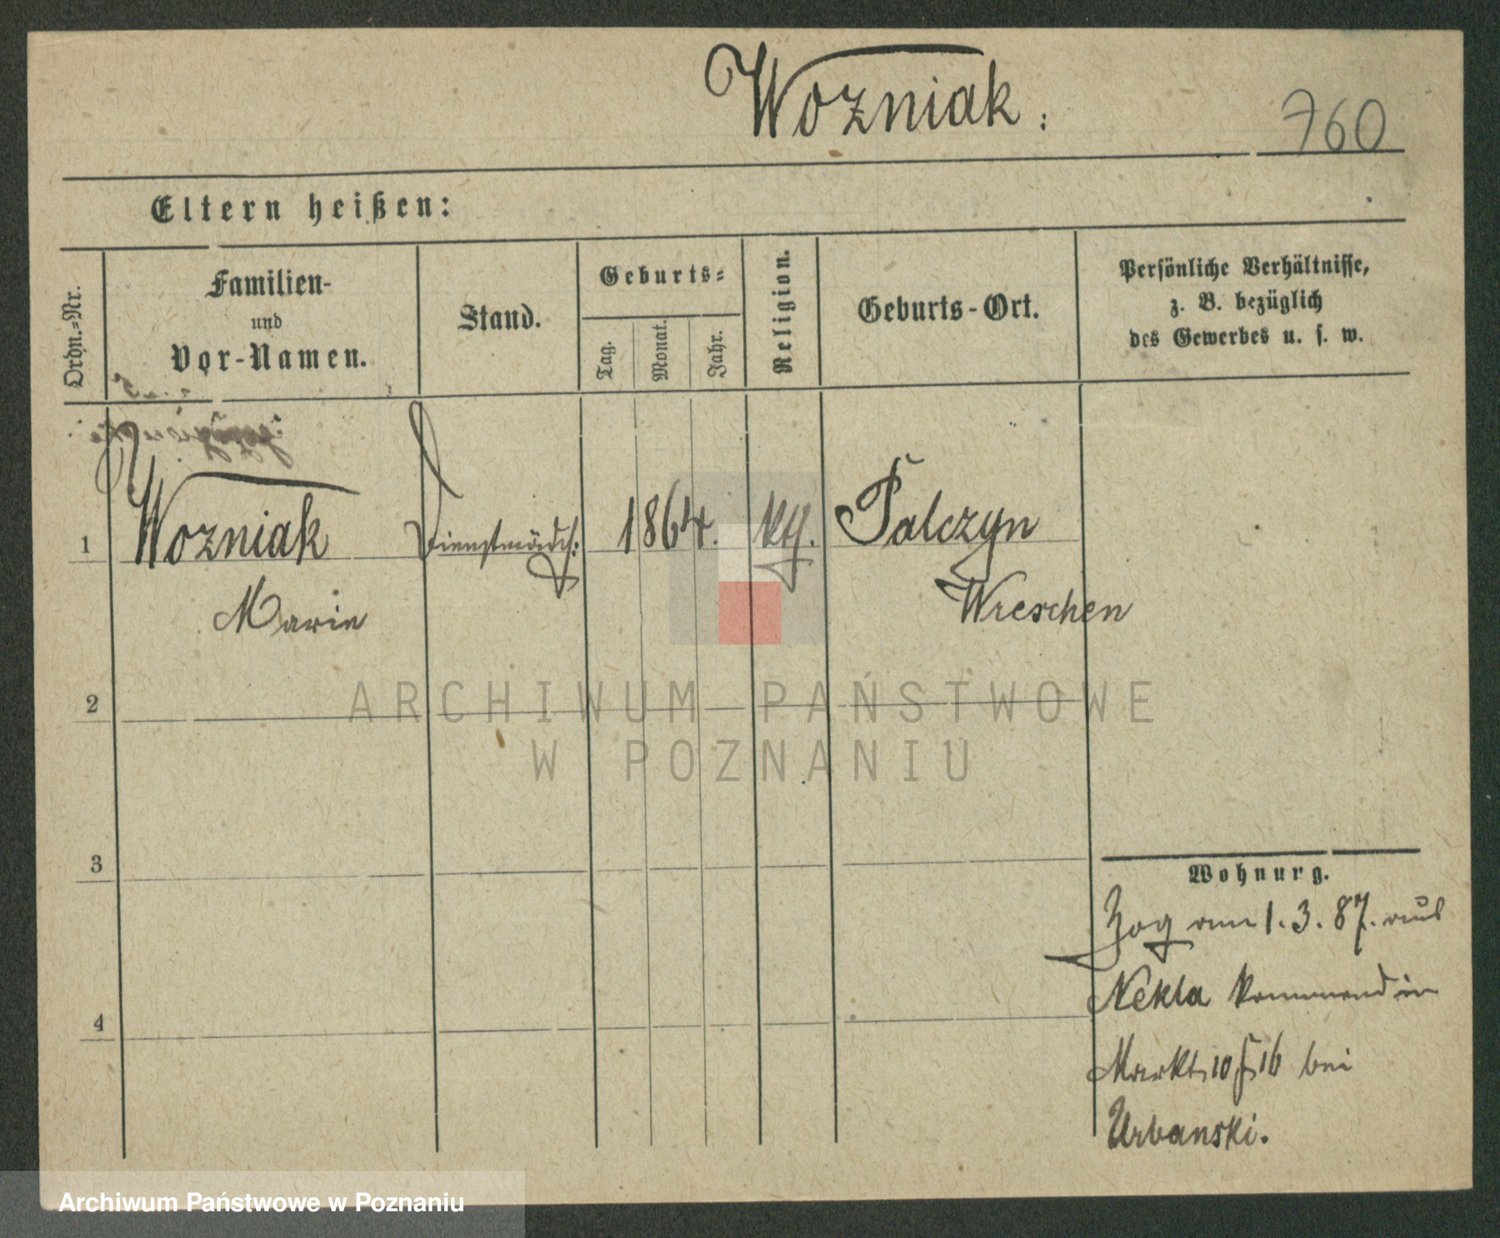 Wozniak.
760
Eltern heißen:
Ordn.=Nr.
Familien-
und
Vor-Namen.
Stand.
Geburts=
Tag.
Monat.
Jahr.
Religion.
Geburts-Ort.
Persönliche Verhältnisse,
z. B. bezüglich
des Gewerbes u. s. w.
1
Wozniak
Marie
Dienstmädch:
1864.
kth.
Palczyn
Wreschen
2
3
4
Wohnurg.
Zog am 1.3.87. aus
Nekla kommend in
Markt 10 bei
Urbanski.
ARCHIWUM PAŃSTWOWE
W POZNANIU
Archiwum Państwowe w Poznaniu